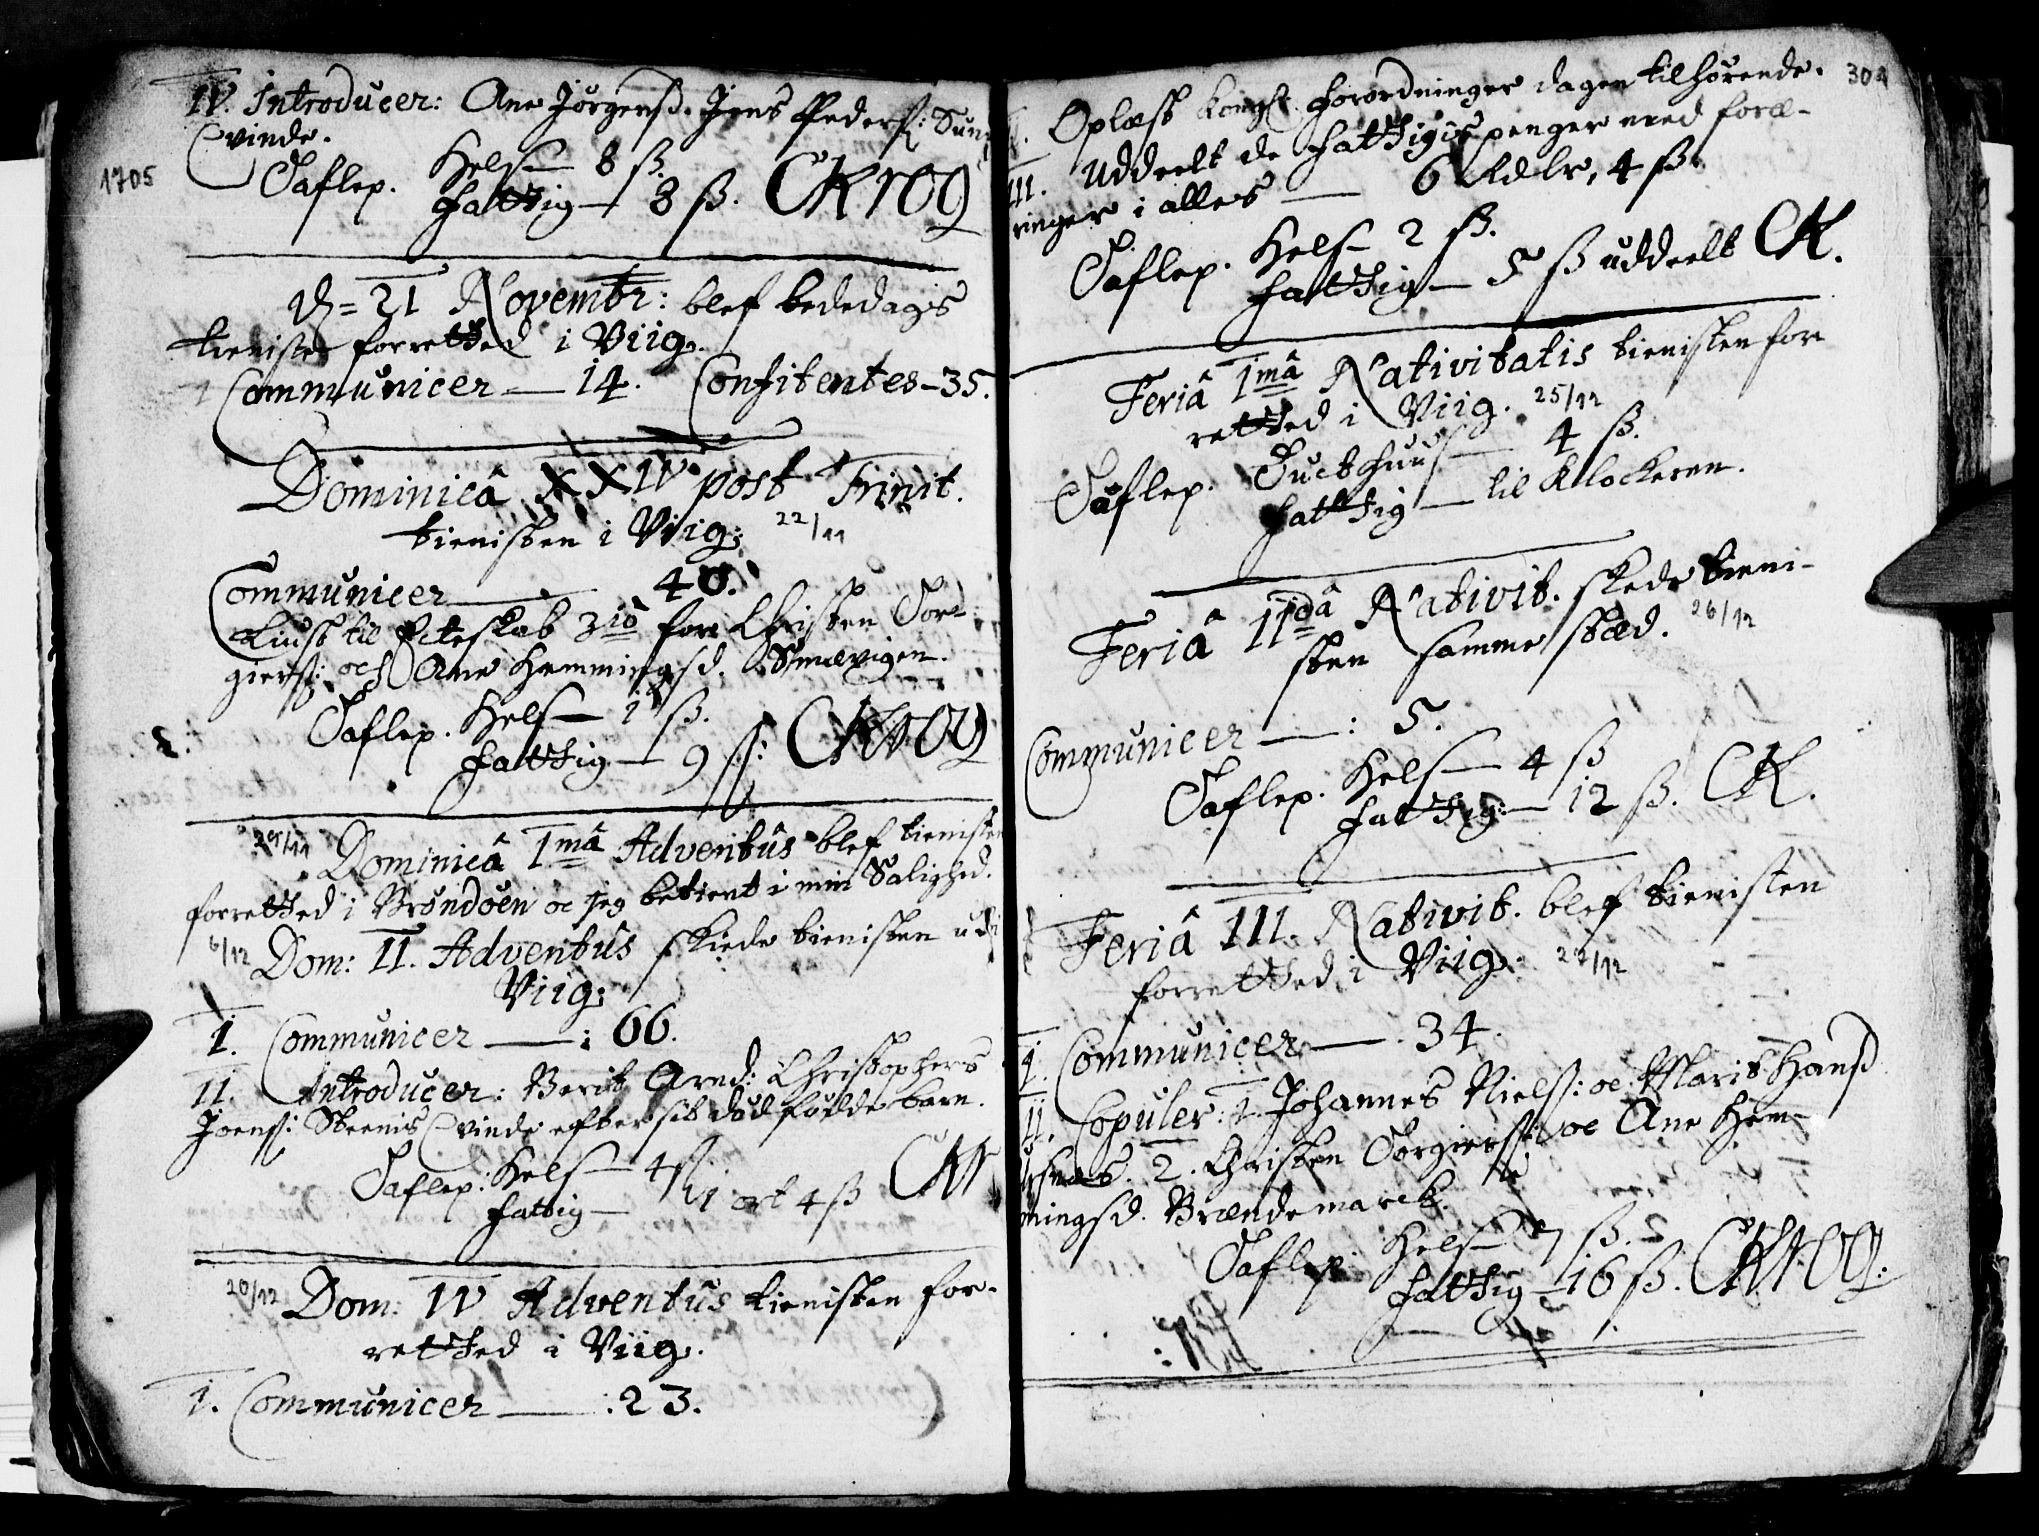 IV. Introducer: Ane Jørgensß. Jens Pederß: Sund
Qvinde.
1705
Taflep. Helß — 8 ß.
fattig — 8 ß. CKrog
D. 21 Novembr: blef bededags
tienisten forretted i Viig.
Communicer — 14. Confitentes — 35.
Dominicâ XXIV post Trinit.
tienisten i Viig: 22/11
Communicer — 40.
Liust til Ecteskab 3io for Christen Tor-
gierß: och Ane Hemmingsd.
Taflep. Helß — 1 ß.
fattig — 9 ß: CKrog
29/11 Dominicâ 1mâ Adventûs blef tienisten
forretted i Brøndöen oc jeg betient i min Salighed.
6/12 Dom: II. Adventûs skiede tienisten udi
Viig:
I. Communicer — : 66.
II. Introducer: Berit Arnd: Christophers
Joenß: Steenis Qvinde efter sit død födde barn.
Taflep: Helß — 4 ß
fattig — 1 ort 4 ß CKr
20/12 Dom: IV Adventus tienisten for-
retted i Viig.
I. Communicer — : 23.
304
II. Oplæst Kongl. forordninger dagen tilhörende.
III. Uddeelt de fattigis penger med foræ-
ringer i alles — 6 Rdlr, 4 ß.
Taflep. Helß — 2 ß.
fattig — 5 ß uddeelt CK.
Feriâ 1mâ Nativitatis tienisten for
retted i Viig. 25/12
Taflep. Tuchthuuß — 4 ß.
fattig — til Klockeren.
Feriâ IIdâ Nativit. skede tieni-
sten samme stæd. 26/12
Communicer — : 5.
Taflep. Helß — 4 ß
fattig: — 12 ß. CK.
Feriâ III. Nativit. blef tienisten
forretted i Viig: 27/12
I. Communicer — 34.
II. Copuler: 1. Johannes Nielß: oc Marit Hanß
2. Christen Torgierß: oc Ane Hem-
mingsd. Brændemarck.
Taflep. Helß — 7 ß.
fattig — 16 ß. CKrog: